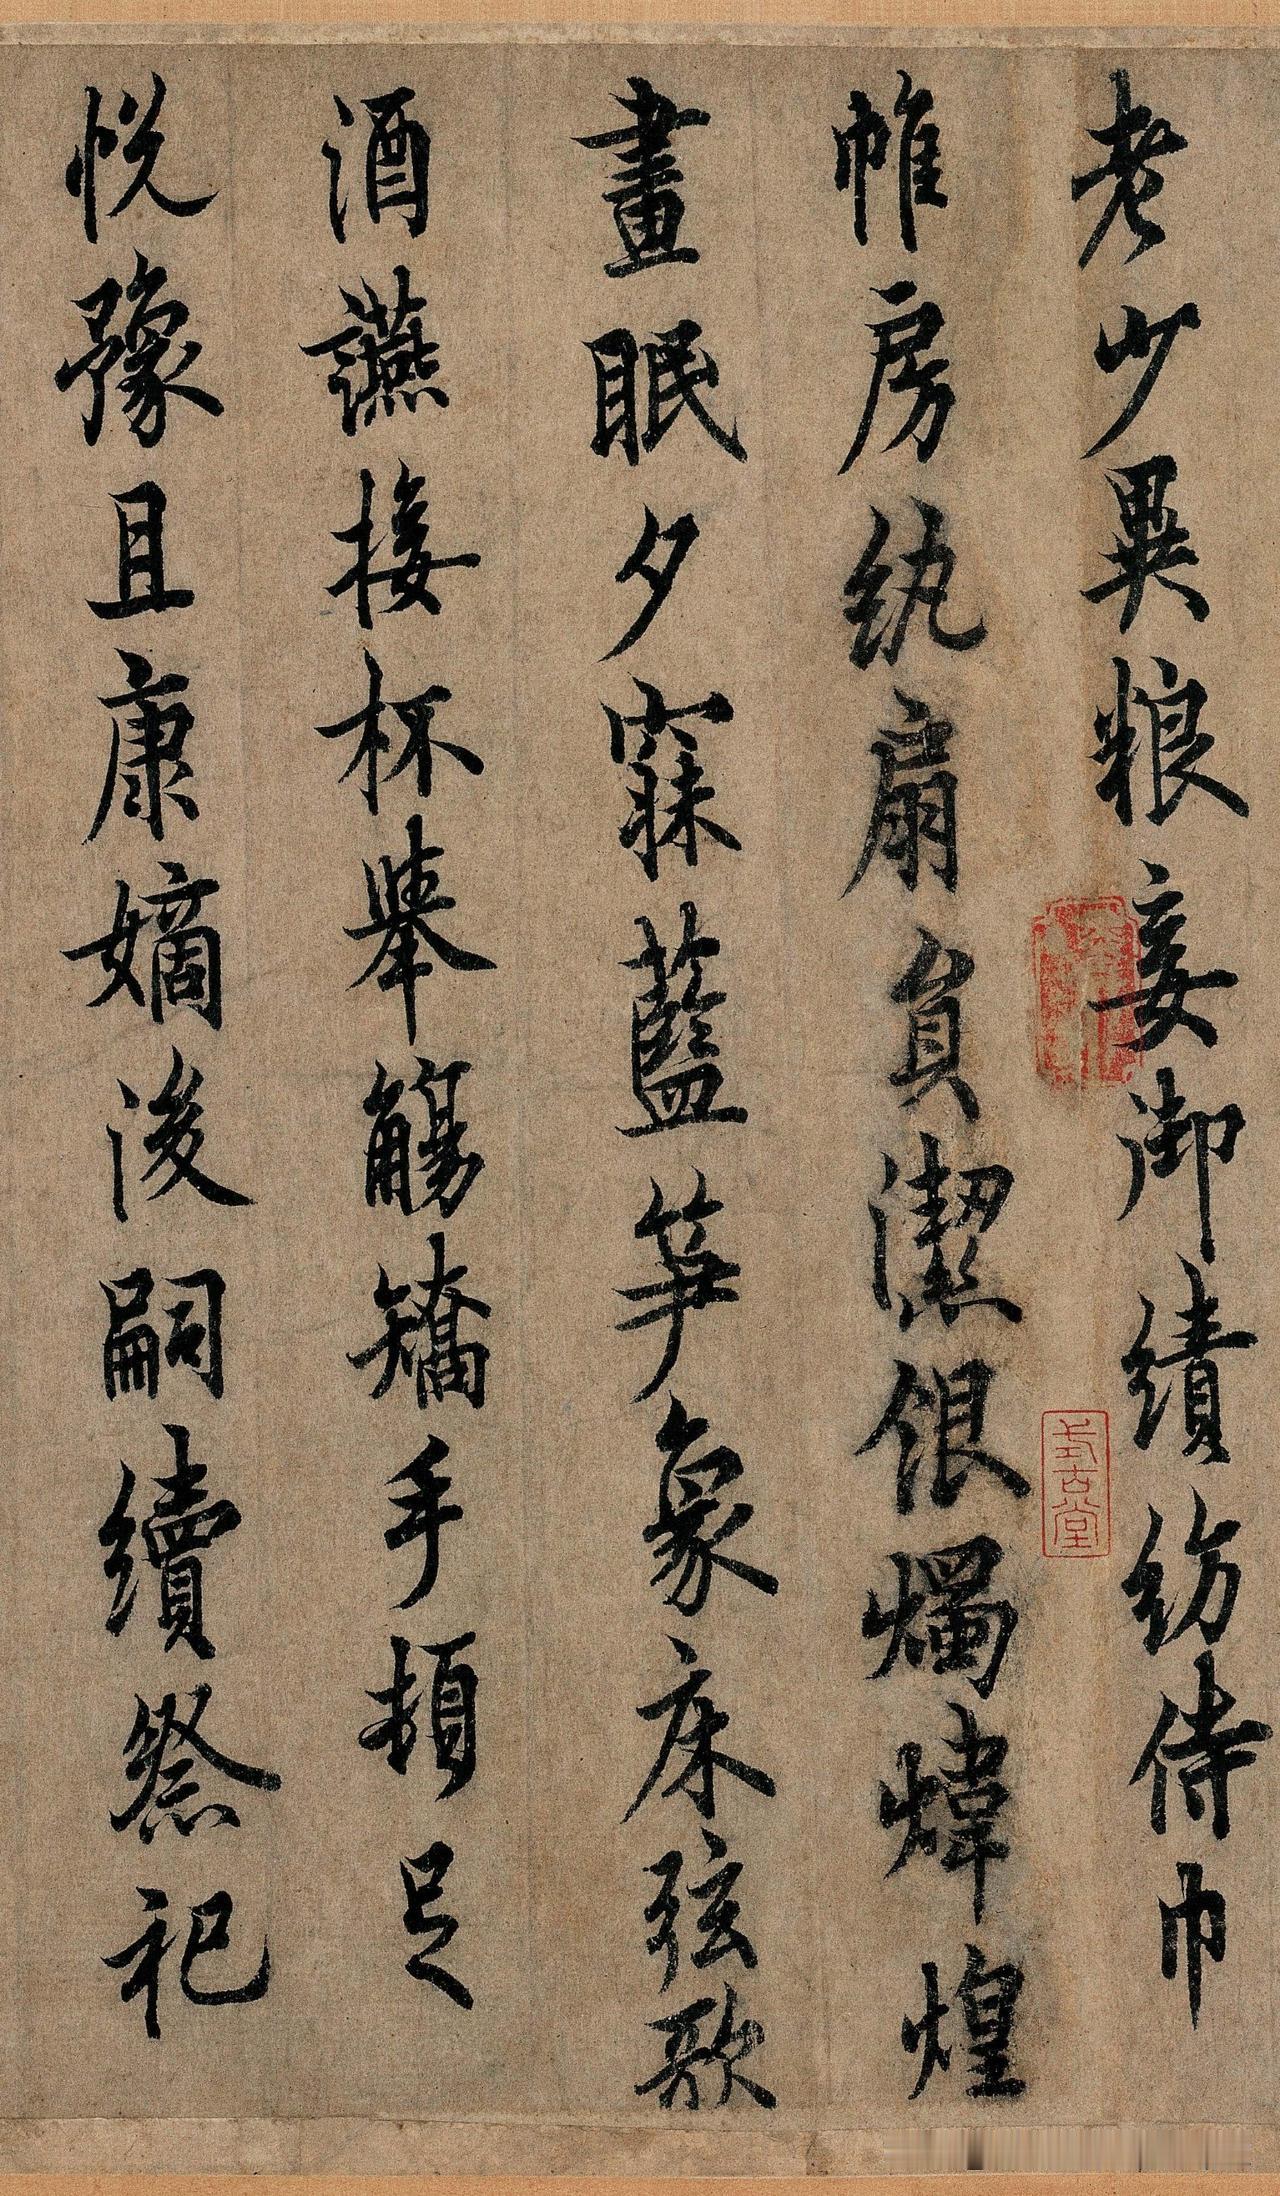 老少異粮妾御績紡侍巾
帷房紈扇員潔銀燭煒煌
畫眠夕寐藍笋象床弦歌
酒讌接杯舉觴矯手頓足
悅豫且康嫡後嗣續祭祀
式古堂